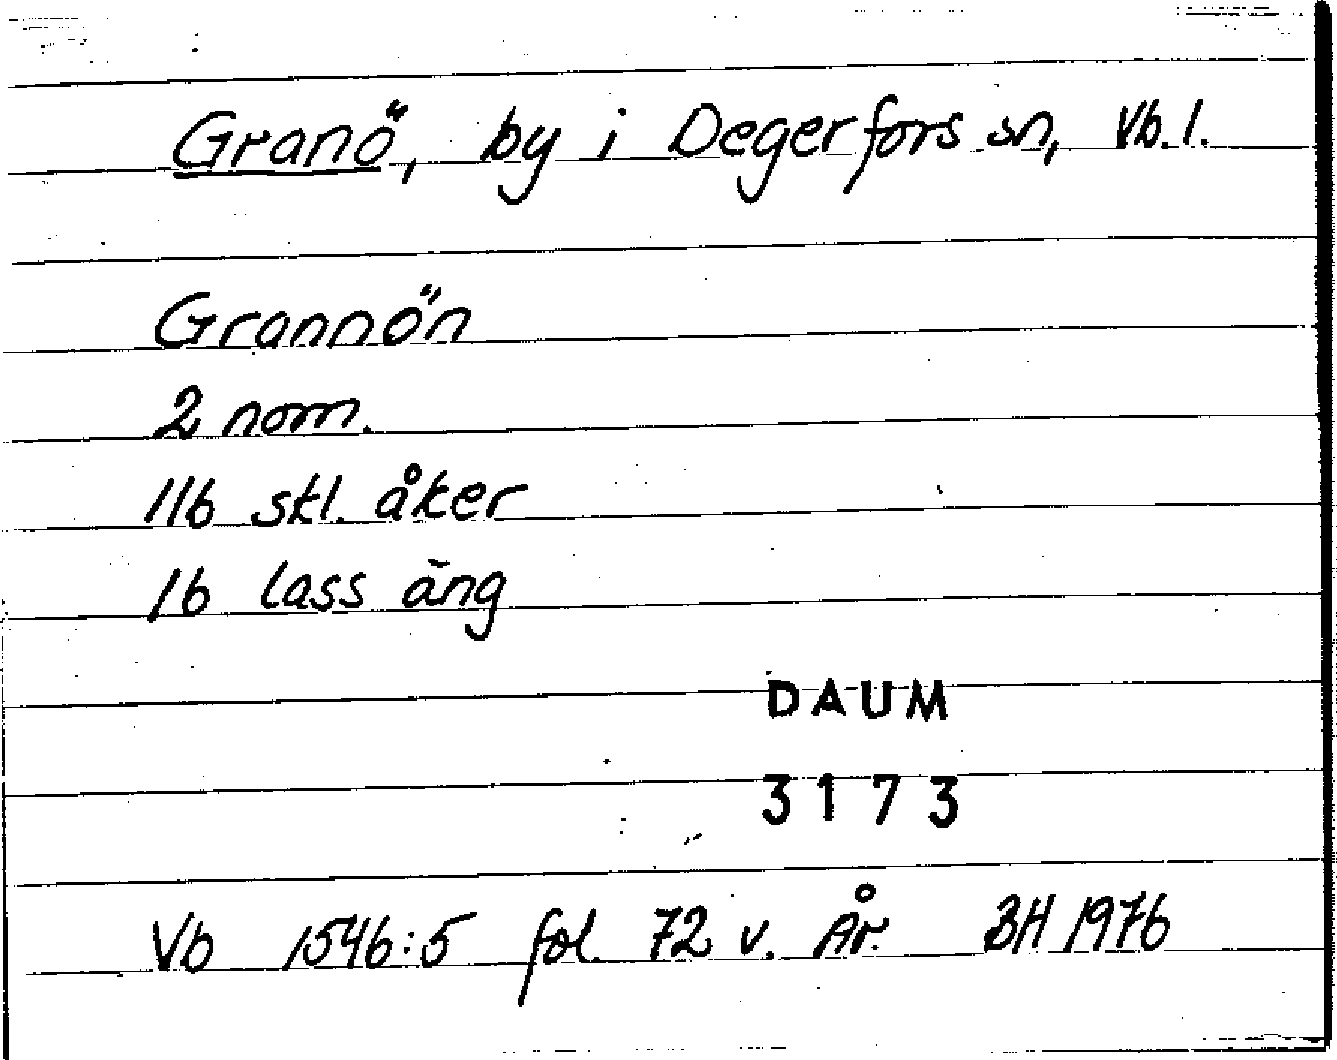 Granö, by i Degerfors sn, Vb. l.
Grannön
2 nom.
116 skl. åker
16 lass äng
DAUM
3173
Vb 1546:5 fol. 72 v. År. BH 1976